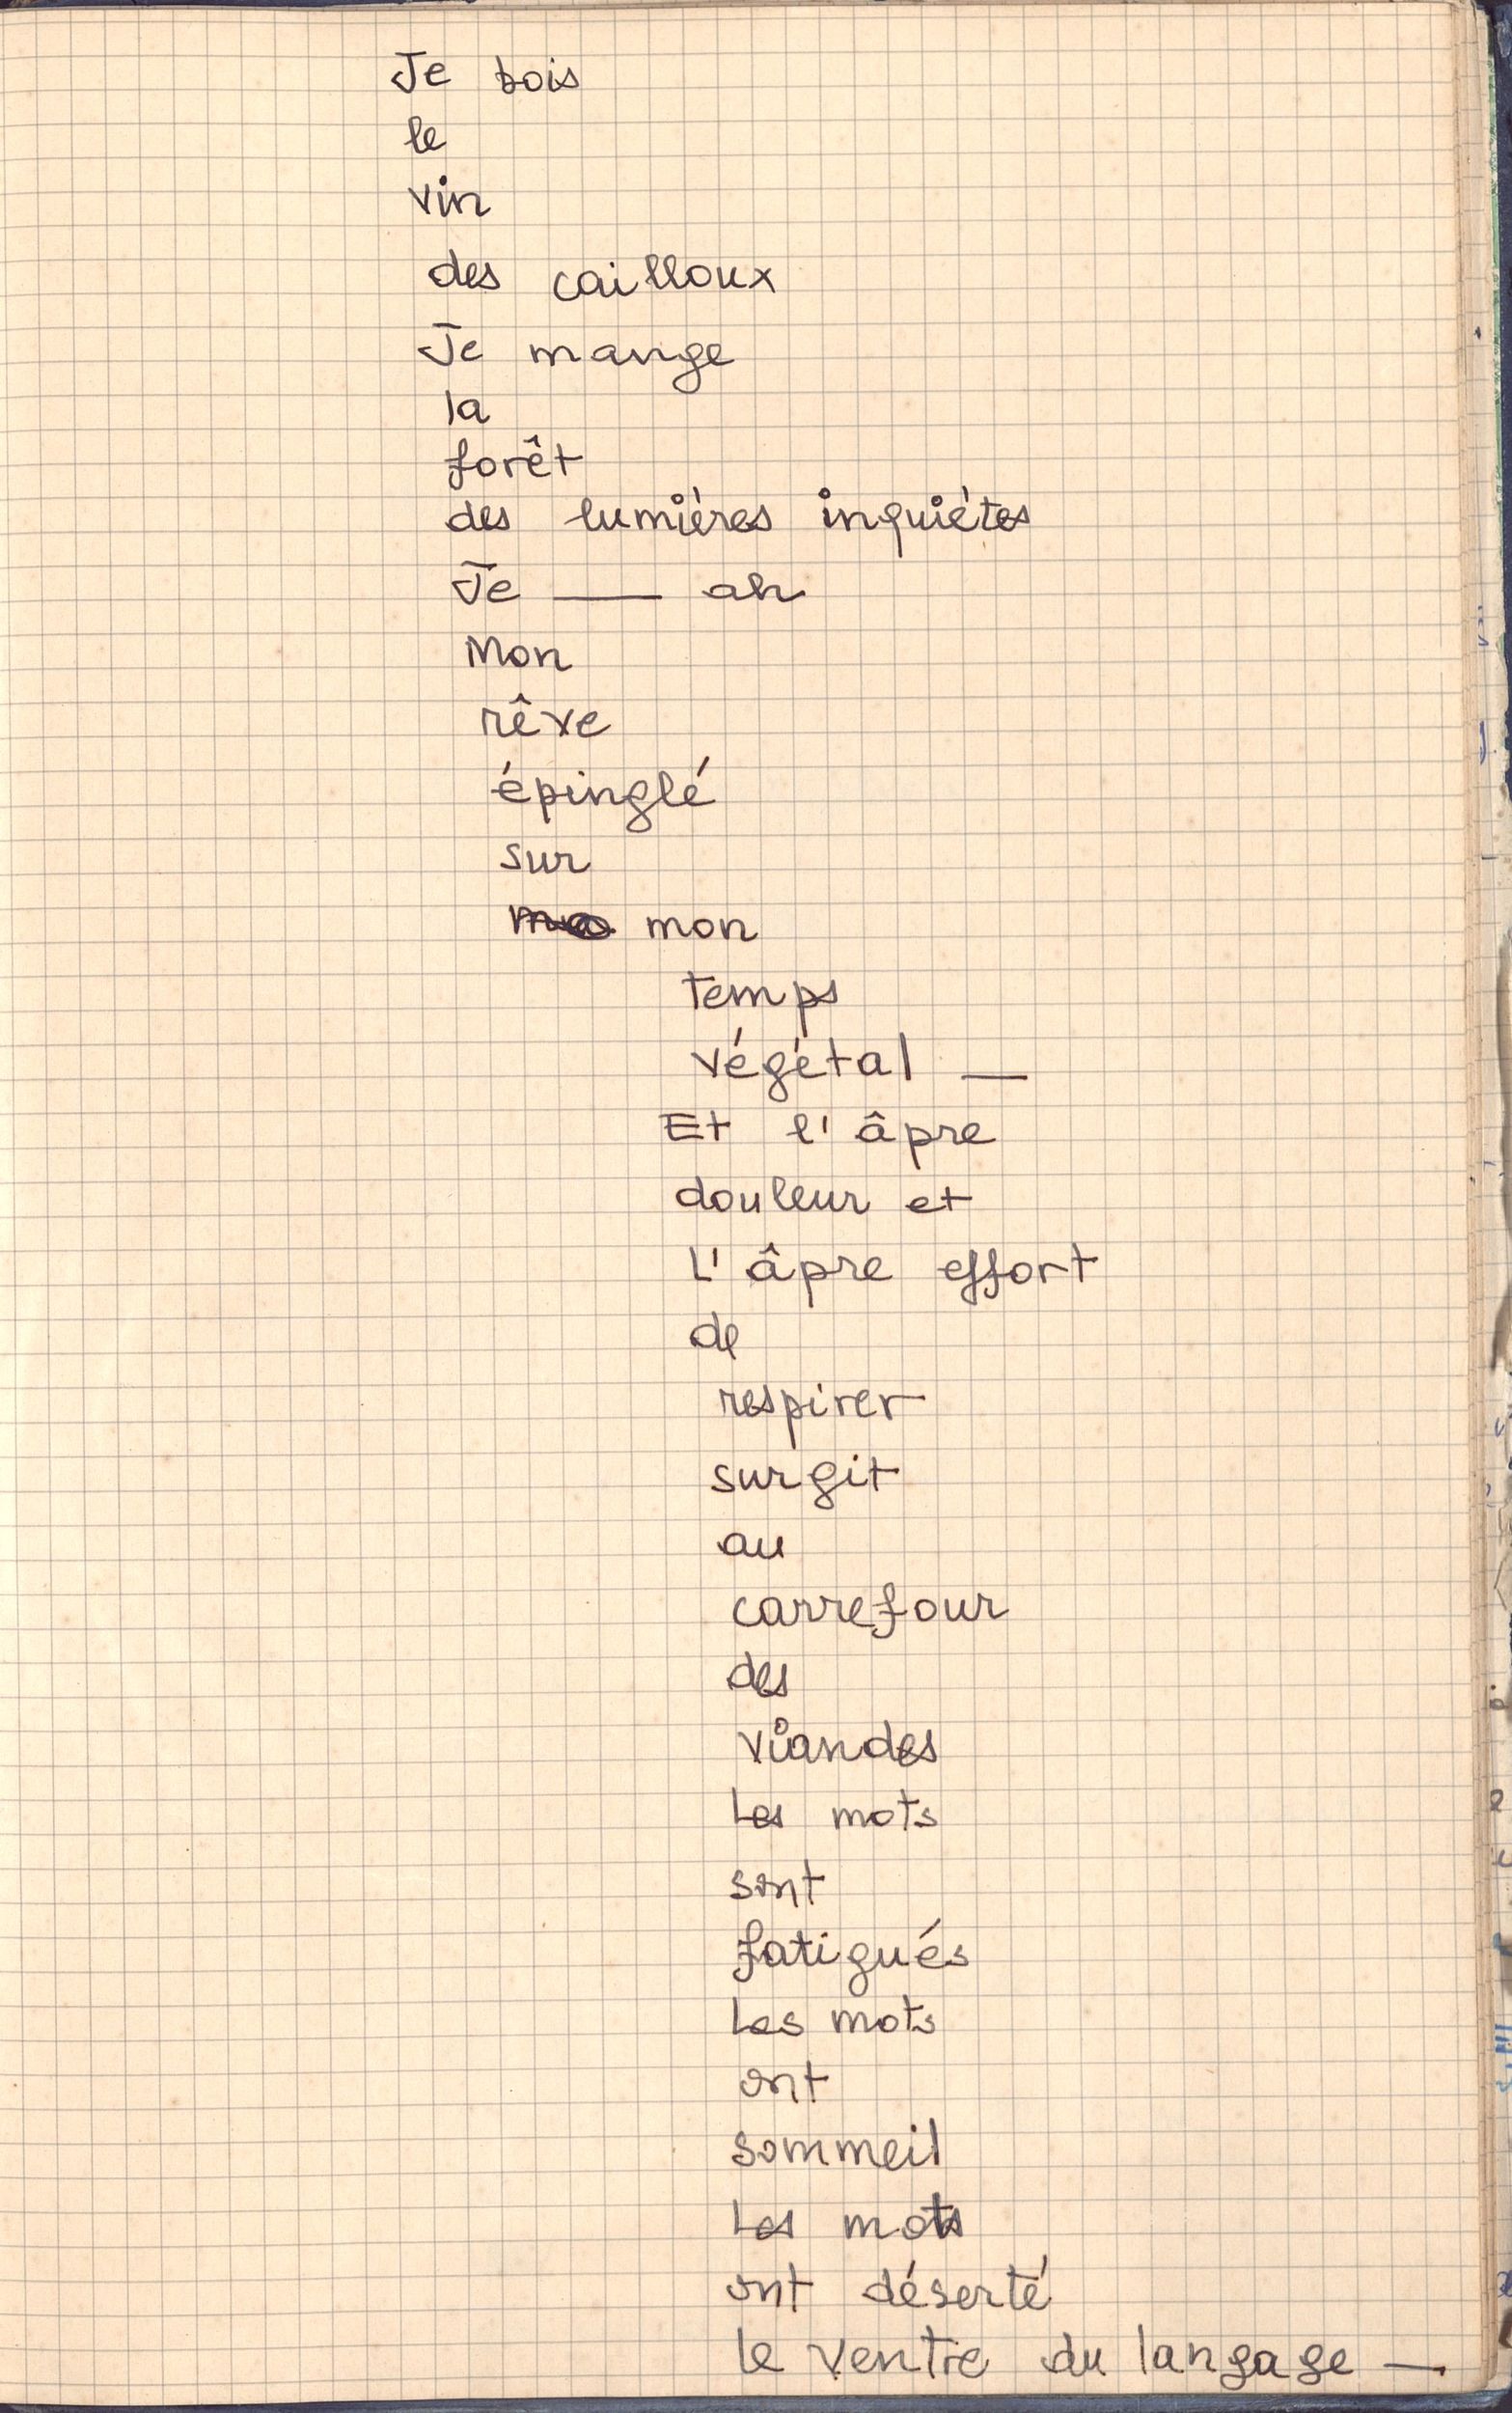 Je bois
le
vin
des cailloux
Je mange
la
forêt
des lumiéres inquiétes
Je — ah
Mon
rêve
épinglé
sur
mon
temps
végétal —
Et l'âpre
douleur et
L'âpre effort
de
respirer
surgit
au
carrefour
des
viandes
Les mots
sont
fatigués
Les mots
ont
sommeil
Les mots
ont déserté
le ventre du langage —